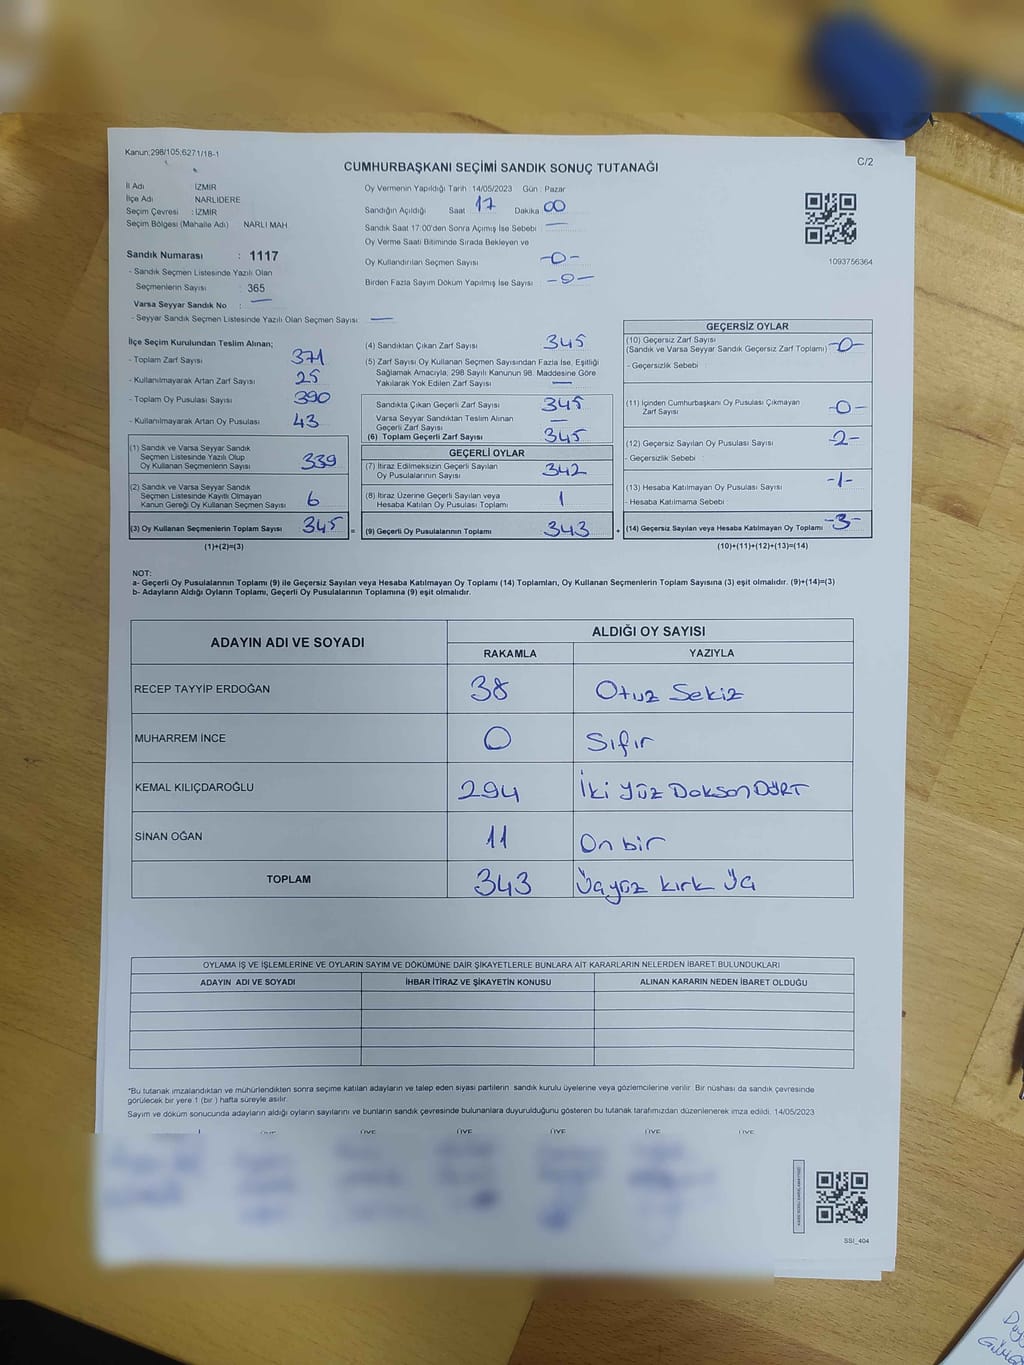 Kanun:298/105;6271/18-1
CUMHURBAŞKANI SEÇİMİ SANDIK SONUÇ TUTANAĞI
C/2
İl Adı : İZMİR
İlçe Adı : NARLIDERE
Seçim Çevresi : İZMİR
Seçim Bölgesi (Mahalle Adı) NARLI MAH
Sandık Numarası : 1117
- Sandık Seçmen Listesinde Yazılı Olan
Seçmenlerin Sayısı : 365
Varsa Seyyar Sandık No : —
- Seyyar Sandık Seçmen Listesinde Yazılı Olan Seçmen Sayısı : —
Oy Vermenin Yapıldığı Tarih : 14/05/2023 Gün : Pazar
Sandığın Açıldığı Saat 17 Dakika 00
Sandık Saat 17:00'den Sonra Açımış İse Sebebi : —
Oy Verme Saati Bitiminde Sırada Bekleyen ve
Oy Kullandırılan Seçmen Sayısı -0-
Birden Fazla Sayım Döküm Yapılmış İse Sayısı : -0-
1093756364
İlçe Seçim Kurulundan Teslim Alınan;
- Toplam Zarf Sayısı 371
- Kullanılmayarak Artan Zarf Sayısı 25
- Toplam Oy Pusulası Sayısı 390
- Kullanılmayarak Artan Oy Pusulası 43
(1) Sandık ve Varsa Seyyar Sandık
Seçmen Listesinde Yazılı Olup
Oy Kullanan Seçmenlerin Sayısı 339
(2) Sandık ve Varsa Seyyar Sandık
Seçmen Listesinde Kayıtlı Olmayan
Kanun Gereği Oy Kullanan Seçmen Sayısı 6
(3) Oy Kullanan Seçmenlerin Toplam Sayısı 345 =
(1)+(2)=(3)
(4) Sandıktan Çıkan Zarf Sayısı 345
(5) Zarf Sayısı Oy Kullanan Seçmen Sayısından Fazla İse, Eşitliği
Sağlamak Amacıyla; 298 Sayılı Kanunun 98. Maddesine Göre
Yakılarak Yok Edilen Zarf Sayısı —
Sandıkta Çıkan Geçerli Zarf Sayısı 345
Varsa Seyyar Sandıktan Teslim Alınan
Geçerli Zarf Sayısı —
(6) Toplam Geçerli Zarf Sayısı 345
GEÇERLİ OYLAR
(7) İtiraz Edilmeksizin Geçerli Sayılan
Oy Pusulasının Sayısı 342
(8) İtiraz Üzerine Geçerli Sayılan veya
Hesaba Katılan Oy Pusulası Toplamı 1
(9) Geçerli Oy Pusulalarının Toplamı 343 +
GEÇERSİZ OYLAR
(10) Geçersiz Zarf Sayısı
(Sandık ve Varsa Seyyar Sandık Geçersiz Zarf Toplamı) -0-
- Geçersizlik Sebebi :
(11) İçinden Cumhurbaşkanı Oy Pusulası Çıkmayan
Zarf Sayısı -0-
(12) Geçersiz Sayılan Oy Pusulası Sayısı -2-
- Geçersizlik Sebebi :
(13) Hesaba Katılmayan Oy Pusulası Sayısı -1-
- Hesaba Katılmama Sebebi :
(14) Geçersiz Sayılan veya Hesaba Katılmayan Oy Toplamı -3-
(10)+(11)+(12)+(13)=(14)
NOT:
a- Geçerli Oy Pusulalarının Toplamı (9) ile Geçersiz Sayılan veya Hesaba Katılmayan Oy Toplamı (14) Toplamları, Oy Kullanan Seçmenlerin Toplam Sayısına (3) eşit olmalıdır. (9)+(14)=(3)
b- Adayların Aldığı Oyların Toplamı, Geçerli Oy Pusulalarının Toplamına (9) eşit olmalıdır.
ADAYIN ADI VE SOYADI ALDIĞI OY SAYISI
RAKAMLA YAZIYLA
RECEP TAYYİP ERDOĞAN 38 Otuz Sekiz
MUHARREM İNCE 0 Sıfır
KEMAL KILIÇDAROĞLU 294 İki Yüz Dokson DÖRT
SİNAN OĞAN 11 On bir
TOPLAM 343 Üçyüz kırk Üç
OYLAMA İŞ VE İŞLEMLERİNE VE OYLARIN SAYIM VE DÖKÜMÜNE DAİR ŞİKAYETLERLE BUNLARA AİT KARARLARIN NELERDEN İBARET BULUNDUKLARI
ADAYIN ADI VE SOYADI İHBAR İTİRAZ VE ŞİKAYETİN KONUSU ALINAN KARARIN NEDEN İBARET OLDUĞU
*Bu tutanak imzalandıktan ve mühürlendikten sonra seçime katılan adayların ve talep eden siyasi partilerin sandık kurulu üyelerine veya gözlemcilerine verilir. Bir nüshası da sandık çevresinde
görülecek bir yere 1 (bir ) hafta süreyle asılır.
Sayım ve döküm sonucunda adayların aldığı oyların sayılarını ve bunların sandık çevresinde bulunanlara duyurulduğunu gösteren bu tutanak tarafımızdan düzenlenerek imza edildi. 14/05/2023
ÜYE ÜYE ÜYE ÜYE ÜYE ÜYE
SSI_404